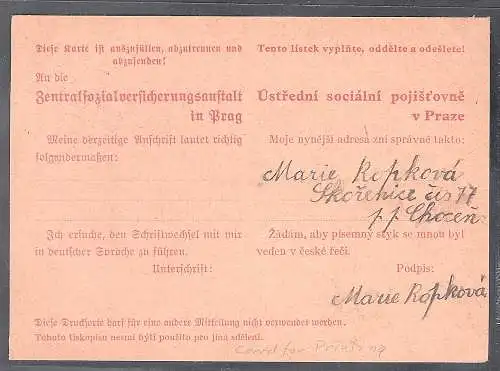 Diese Karte ist auszufüllen, abzutrennen und abzusenden!
An die
Zentralsozialversicherungsanstalt
in Prag
Meine derzeitige Anschrift lautet richtig
folgendermaßen:
Ich ersuche, den Schriftwechsel mit mir
in deutscher Sprache zu führen.
Unterschrift:
Tento lístek vyplňte, oddělte a odešlete!
Ústřední sociální pojišťovně
v Praze
Moje nynější adresa zní správně takto:
Marie Ropková
Skořenice čís 77
p.p. Choceň
Žádám, aby písemný styk se mnou byl
veden v české řeči.
Podpis:
Marie Ropková
Diese Drucksorte darf für eine andere Mitteilung nicht verwendet werden.
Tohoto tiskopisu nesmí býti použito pro jiná sdělení.
Card for Printing